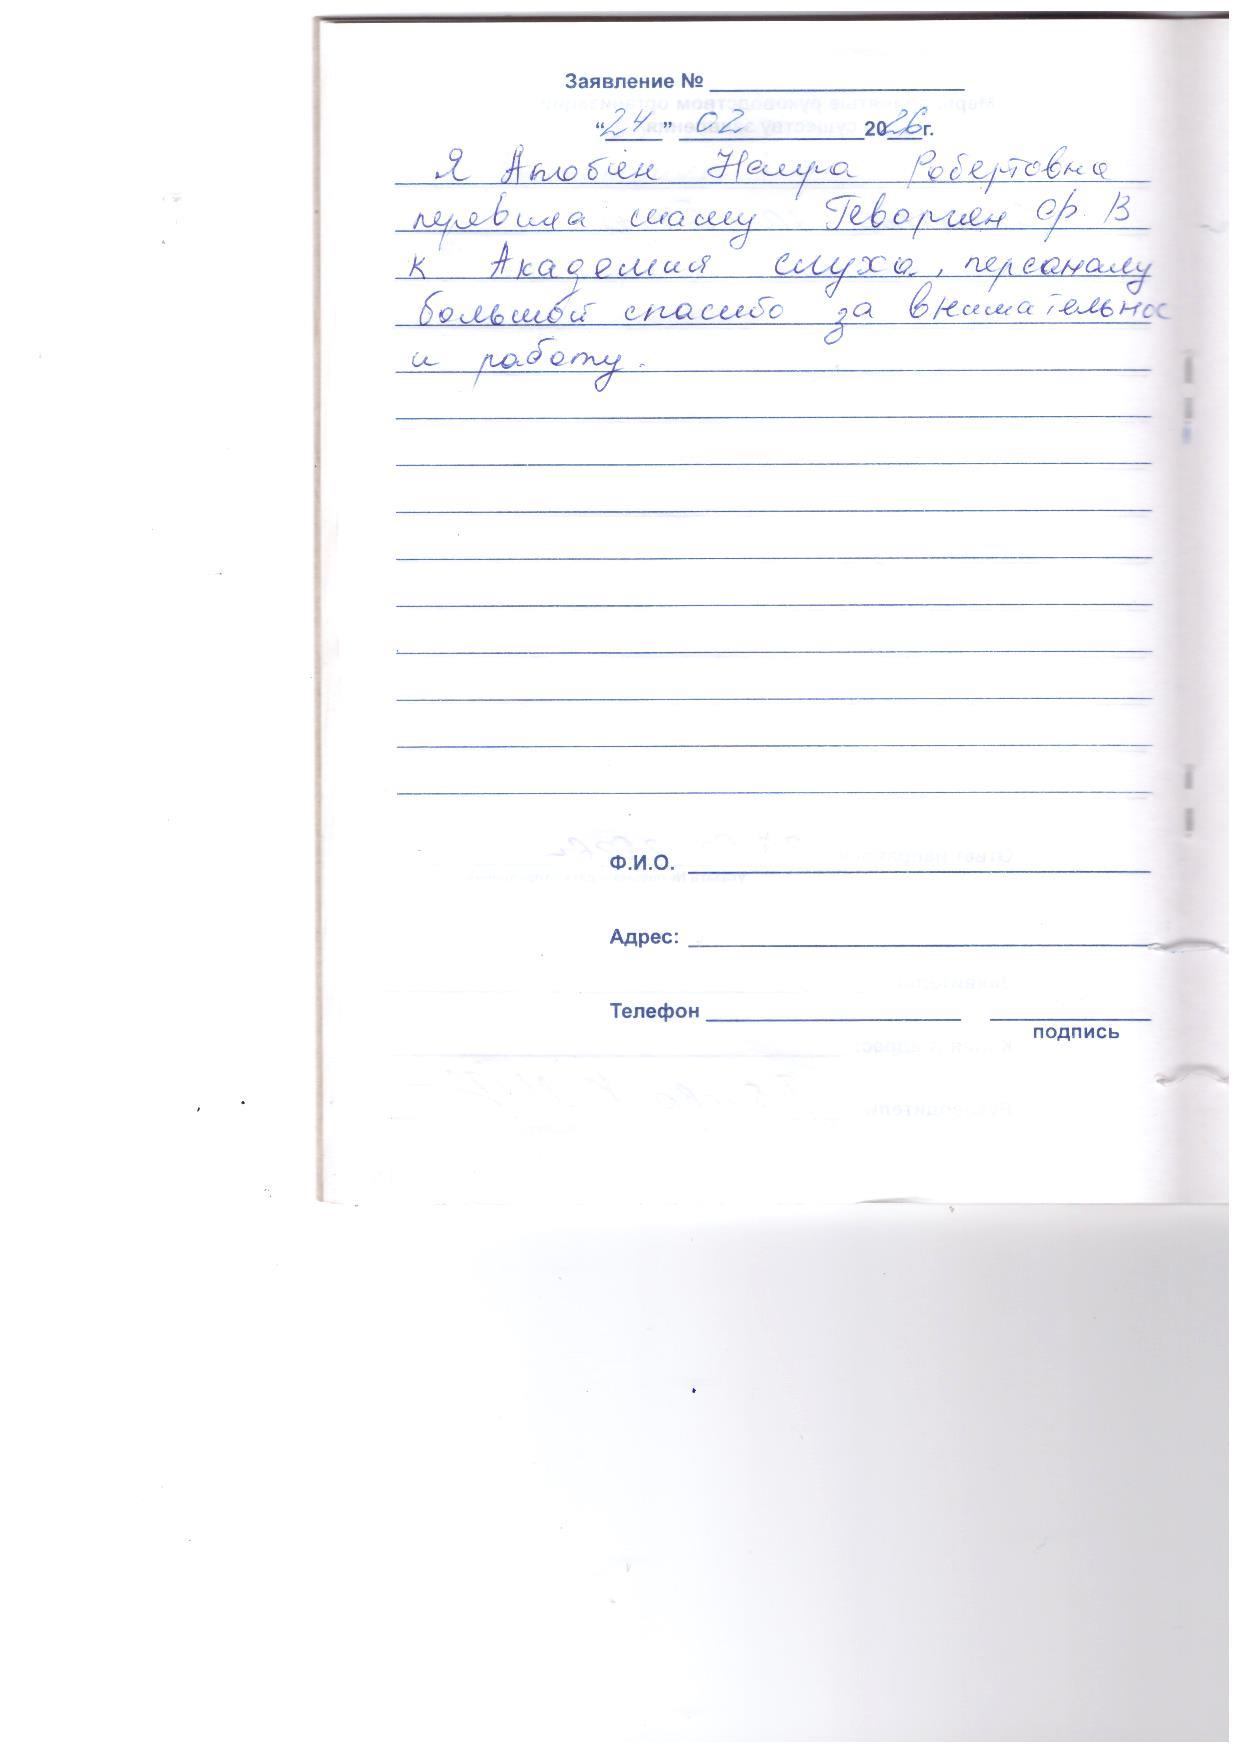 Заявление №
“24” 02 2026г.
Я Атобян Наира Робертовна
первила маму Геворгян Ф. В
к Академия слуха, персоналу
большой спасибо за внимательнос
и работу.
Ф.И.О.
Адрес:
Телефон
подпись